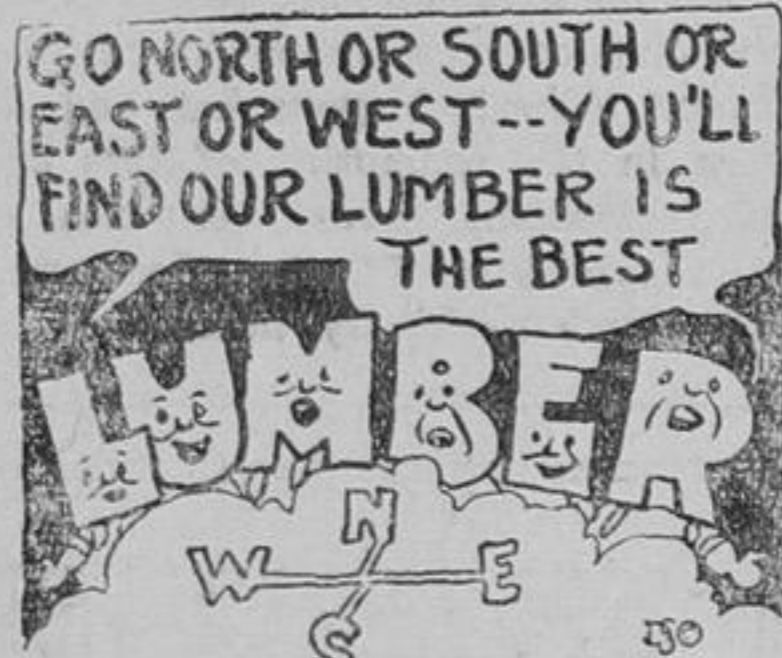 GO NORTH OR SOUTH OR
EAST OR WEST--YOU'LL
FIND OUR LUMBER IS
THE BEST
LUMBER
N
W E
S